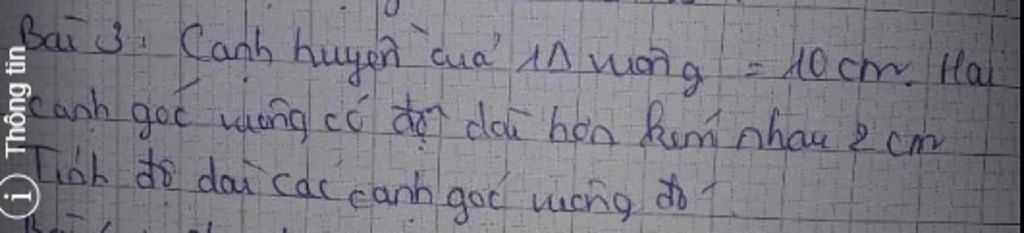 Bài 3: Cạnh huyền của 1Δ vuông = 10 cm. Hai
cạnh góc vuông có độ dài hơn kém nhau 2 cm
Tính độ dài các cạnh góc vuông đó
i Thông tin